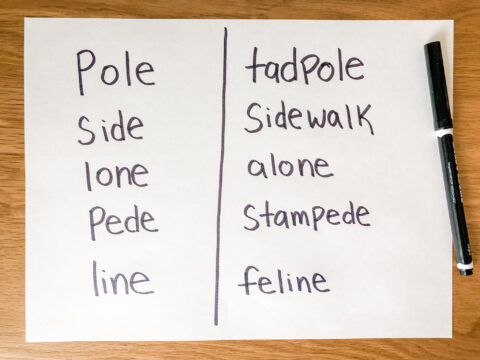 Pole tadpole
Side Sidewalk
lone alone
Pede Stampede
line feline